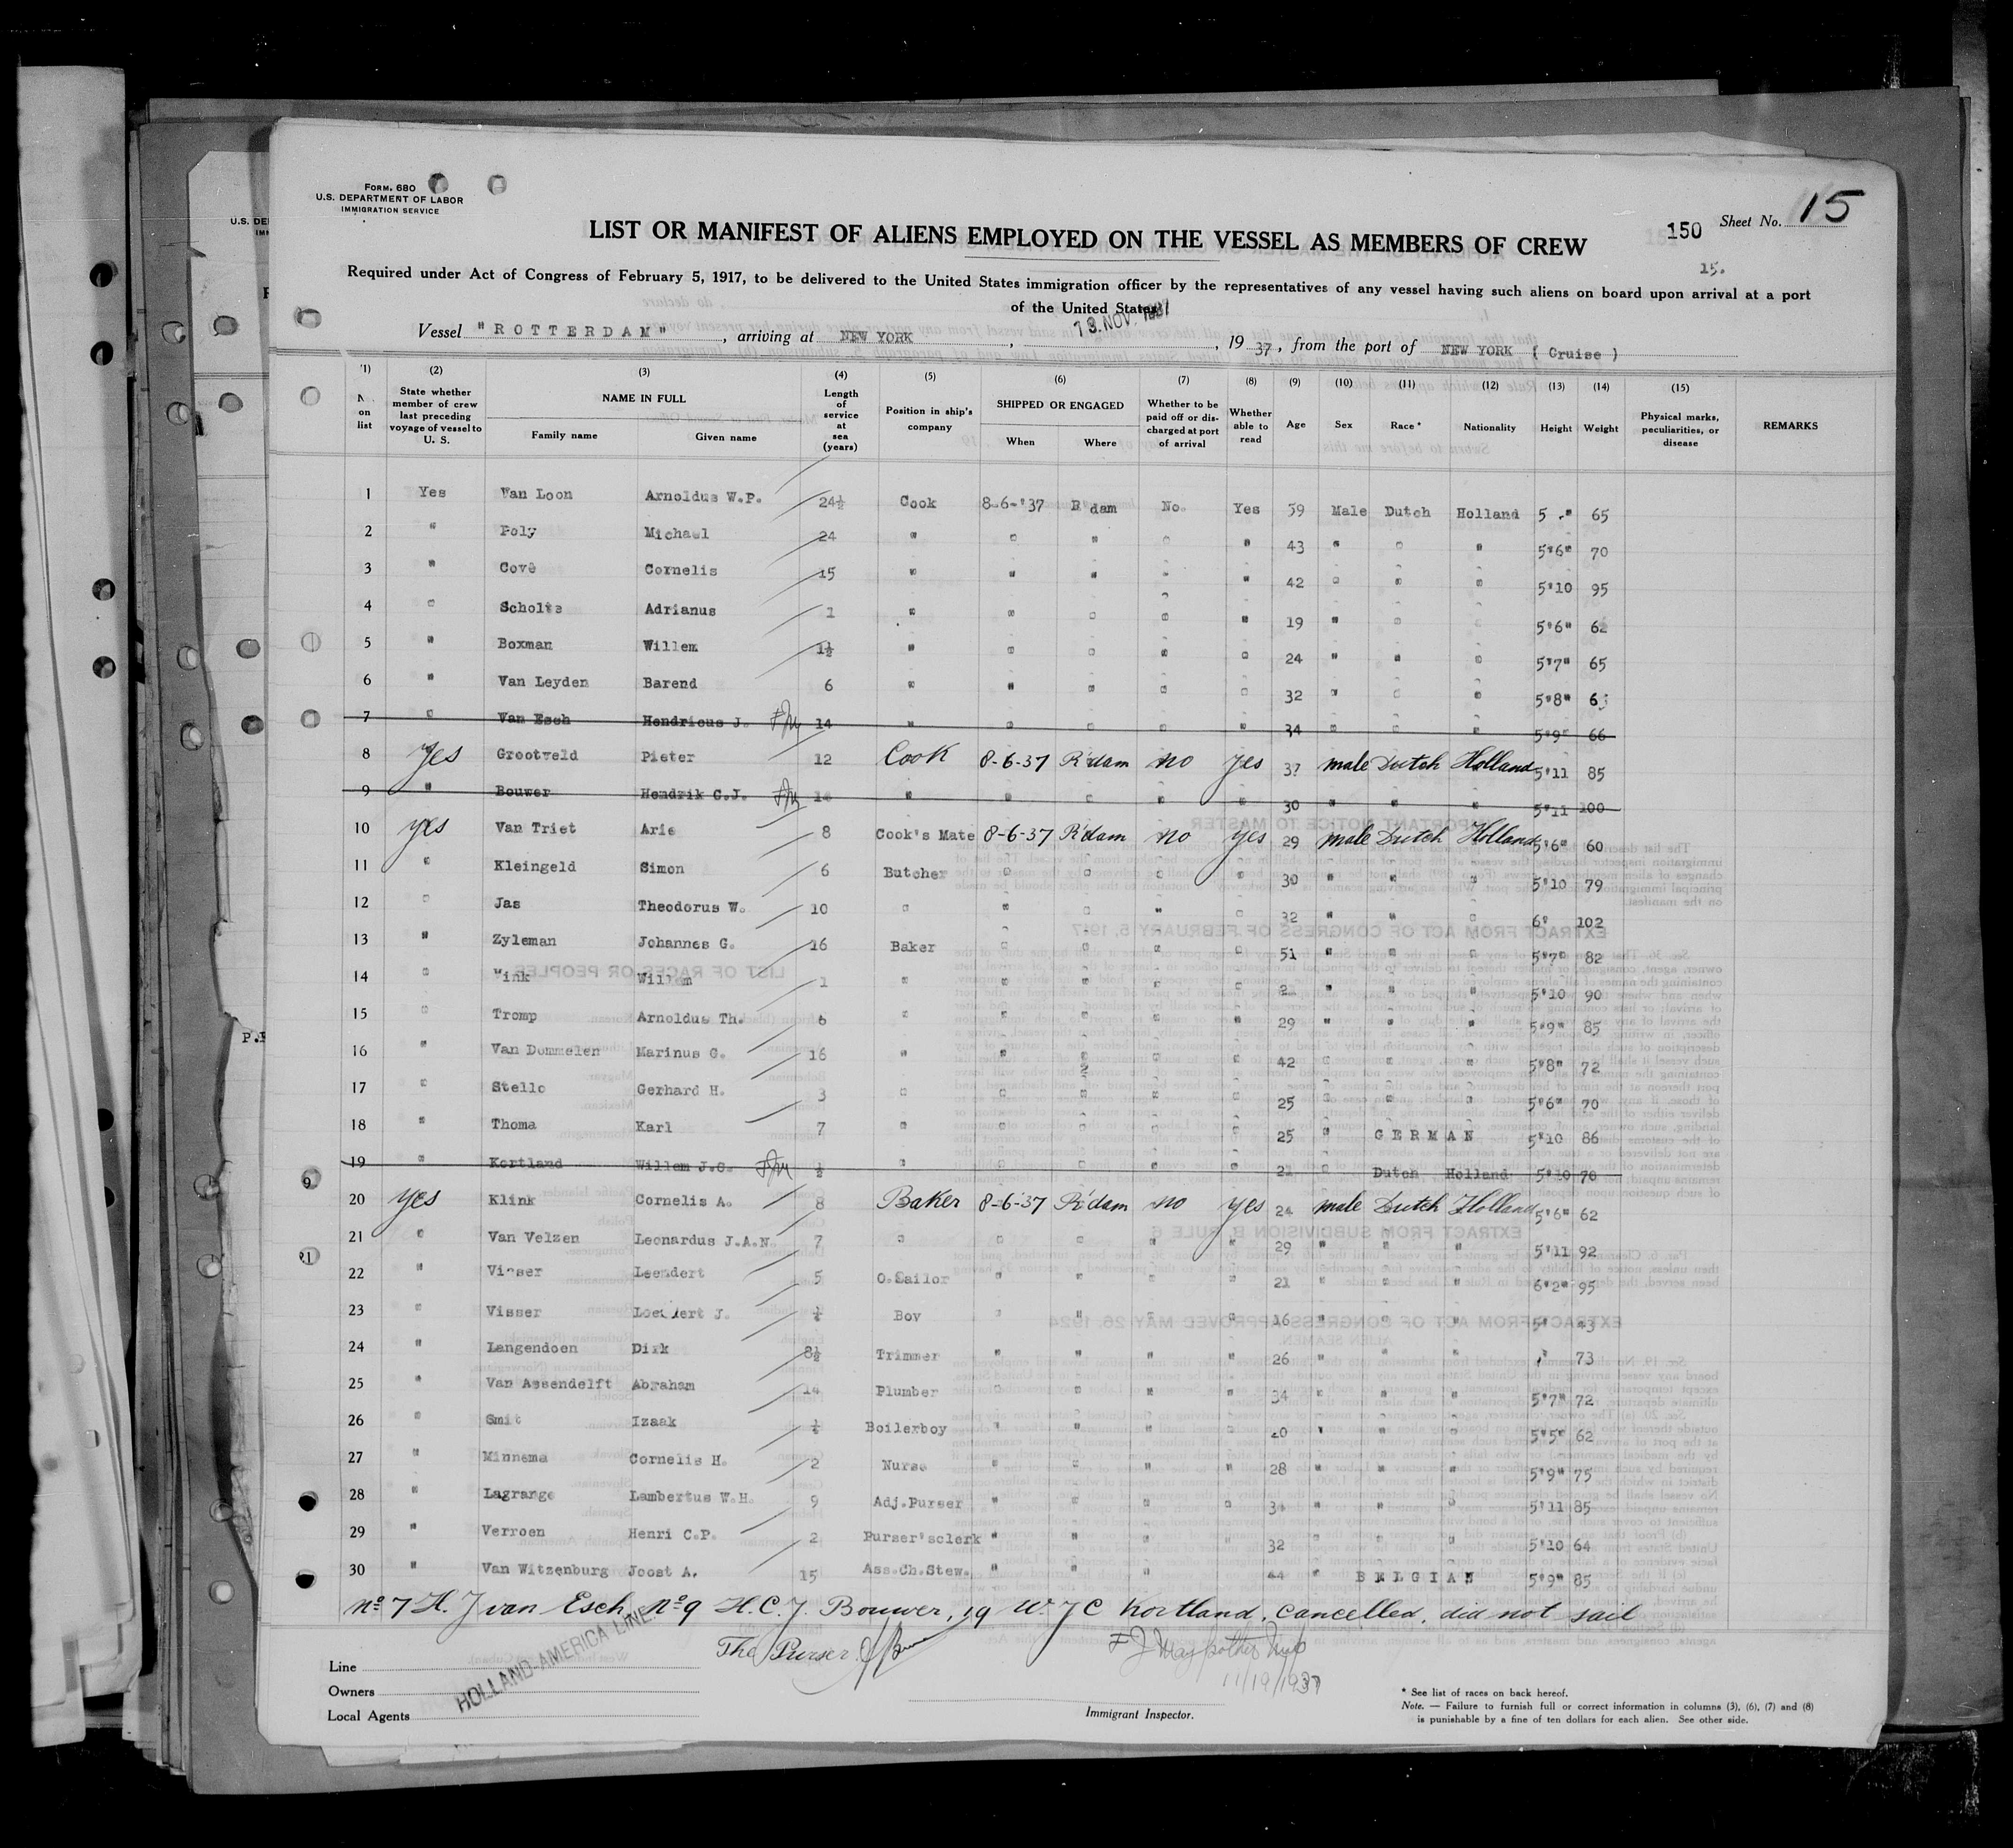 FORM. 680
U.S. DEPARTMENT OF LABOR
IMMIGRATION SERVICE
150 Sheet No. 15
15.
LIST OR MANIFEST OF ALIENS EMPLOYED ON THE VESSEL AS MEMBERS OF CREW
Required under Act of Congress of February 5, 1917, to be delivered to the United States immigration officer by the representatives of any vessel having such aliens on board upon arrival at a port
of the United States
Vessel "ROTTERDAM", arriving at NEW YORK, NOV. 1937, 1937, from the port of NEW YORK ( Cruise )
(1) (2) (3) (4) (5) (6) (7) (8) (9) (10) (11) (12) (13) (14) (15)
on list State whether member of crew last preceding voyage of vessel to U. S. NAME IN FULL Family name Given name Length of service at sea (years) Position in ship's company SHIPPED OR ENGAGED When Where Whether to be paid off or discharged at port of arrival Whether able to read Age Sex Race * Nationality Height Weight Physical marks, peculiarities, or disease REMARKS
1 Yes Van Loon Arnoldus W.P. 24½ Cook 8-6-'37 R dam No. Yes 59 Male Dutch Holland 5 65
2 " Poly Michael 24 " " " " " 43 " " " 5'6" 70
3 " Cové Cornelis 15 " " " " " 42 " " " 5'10 95
4 " Scholte Adrianus 1 " " " " " 19 " " " 5'6" 62
5 " Boxman Willem 1½ " " " " " 24 " " " 5'7" 65
6 " Van Leyden Barend 6 " " " " " 32 " " " 5'8"
7 " Van Esch Hendricus J. 14 " " " " " 34 " " " 5'9" 66
8 yes Grootveld Pieter 12 Cook 8-6-37 R'dam no yes 37 male Dutch Holland 5'11 85
9 " Bouwer Hendrik C.J. 14 " " " " " 30 " " " 5'11 100
10 yes Van Triet Arie 8 Cook's Mate 8-6-37 R'dam no yes 29 male Dutch Holland 5'6" 60
11 " Kleingeld Simon 6 Butcher " " " " 30 " " " 5'10 79
12 " Jas Theodorus W. 10 " " " " " 32 " " " 6' 102
13 " Zyleman Johannes G. 16 Baker " " " " 51 " " " 5'7" 82
14 " Willem 1 " " " " " " " " 5'10 90
15 " Tromp Arnoldus Th. 6 " " " " " 29 " " " 5'9" 85
16 " Van Dommelen Marinus G. 16 " " " " " 42 " " " 5'8" 72
17 " Stello Gerhard H. 3 " " " " " 25 " " " 5'6" 70
18 " Thoma Karl 7 " " " " " 25 " GERMAN 5'10 86
19 " Kortland Willem J.C. ½ " " " " " 21 " Dutch Holland 5'10 70
20 yes Klink Cornelis A. 8 Baker 8-6-37 R'dam no yes 24 male Dutch Holland 5'6" 62
21 " Van Velzen Leonardus J.A.N. 7 " " " " " 29 " " " 5'11 92
22 " Visser Leendert 5 O.Sailor " " " " 21 " " " 6'2" 95
23 " Visser J. Boy " " " " 16 " " " 43
24 " Langendoen Dirk 8½ Trimmer " " " " 26 " " " 73
25 " Van Assendelft Abraham 14 Plumber " " " " 34 " " " 5'7" 72
26 " Smit Izaak Boilerboy " " " " " " " 5'5" 62
27 " Minnema Cornelis H. 2 Nurse " " " " 28 " " " 5'9" 75
28 " Lagrange Lambertus W.H. 9 Adj.Purser " " " " " " " 5'11 85
29 " Verroen Henri C.P. 2 Purser'sclerk " " " " 32 " " " 5'10 64
30 " Van Witzenburg Joost A. 15 Ass.Ch.Stew. " " " 44 " BELGIAN 5'9" 85
No 7 H. J van Esch, No 9 H.C.J. Bouwer, 19 W. J C Kortland, cancelled, did not sail
The Purser
11/19/1937
HOLLAND-AMERICA LINE
Line
Owners
Local Agents
Immigrant Inspector.
* See list of races on back hereof.
Note. — Failure to furnish full or correct information in columns (3), (6), (7) and (8)
is punishable by a fine of ten dollars for each alien. See other side.